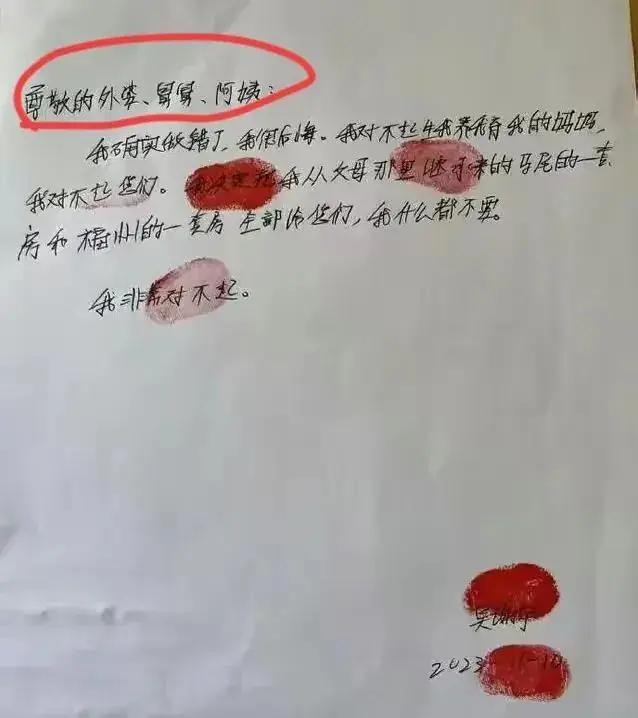 尊敬的外婆、舅舅、阿姨:
我确实做错了，我很后悔。我对不起生我养育我的妈妈，
我对不起您们。我决定把我从父母那里继承来的马尾的一套
房和福州的一套房全部给您们，我什么都不要。
我非常对不起。
吴谢宇
2023-11-10